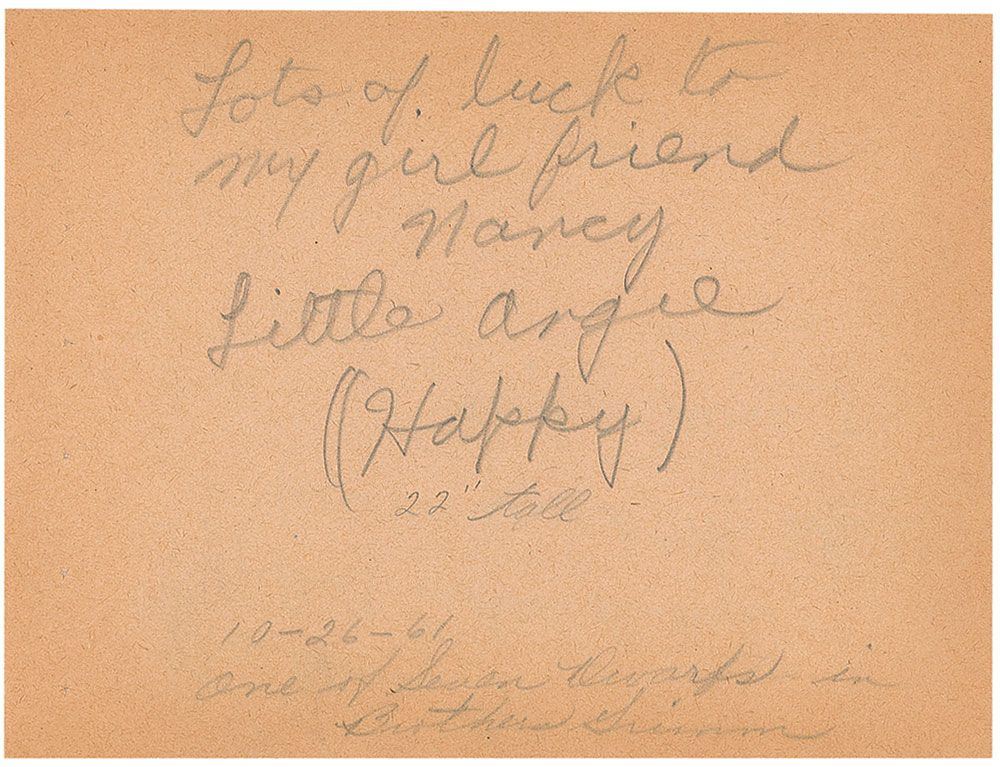 Lots of luck to
my girl friend
Nancy
Little Angie
(Happy)
22" tall
10-26-61
One of Seven Dwarfs in
Brothers Grimm